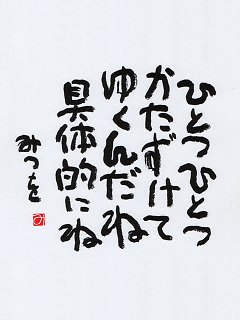 ひとつひとつ
かたずけて
ゆくんだね
具体的にね
みつを
み